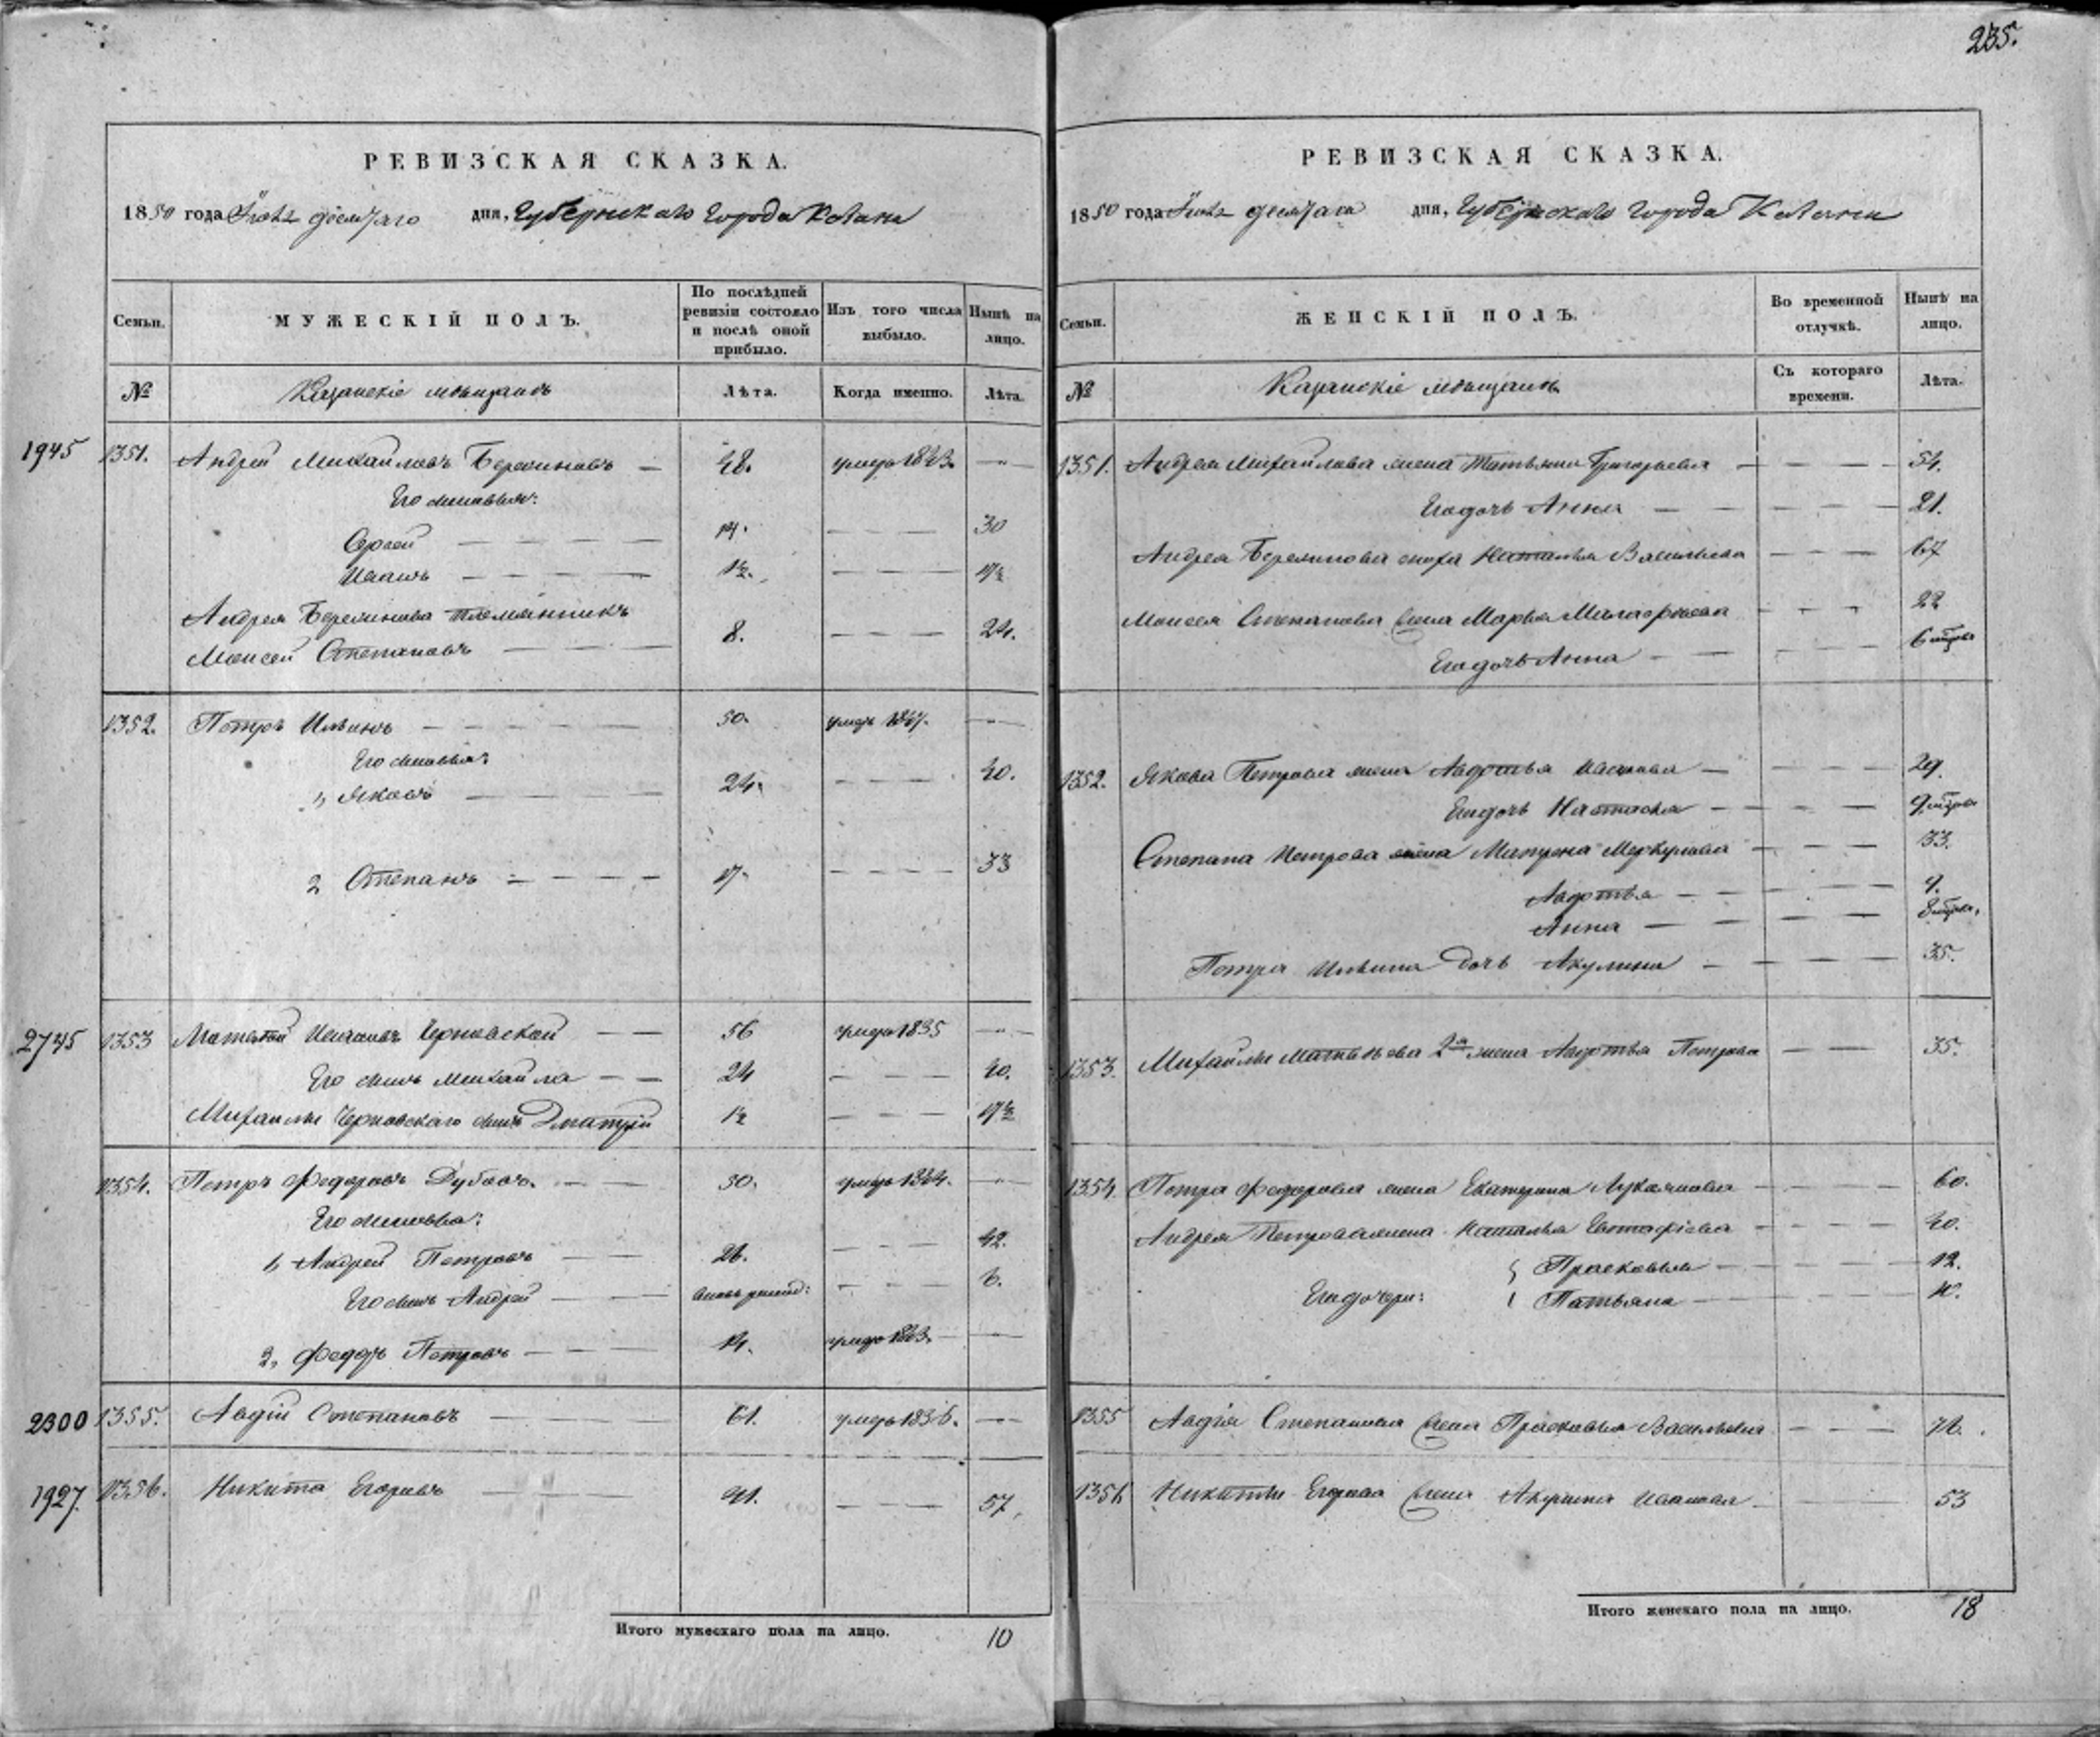 235.
РЕВИЗСКАЯ СКАЗКА.
1850 года дня, Губернскаго Города Казани
Семьи. МУЖЕСКІЙ ПОЛЪ. По послѣдней ревизіи состояло и послѣ оной прибыло. Изъ того числа выбыло. Нынѣ на лицо.
№ Казанскіе мѣщане Лѣта. Когда именно. Лѣта.
1945 1351. Андрей Михайловъ — 48. умеръ 1843. — „ —
Его сыновья:
Сергей — — — 14. — — — 30
Иванъ — — — 1½. — — — 
Андрея племянникъ
Моисей Степановъ — — — 8. — — — 24.
1352. Петръ Ильинъ — — — 50. умеръ 1847. — „ —
Его сыновья:
1, Яковъ — — — 24. — — — 40.
2 Степанъ — — — 17. — — — 33
2745 1353 Матвей Ивановъ Черновской — — 56 умеръ 1835 — „ —
Его сынъ Михайла — — 24 — — — 40.
Михайлы Черновскаго сынъ Дмитрій 1½ — — — 17½
1354. Петръ Федоровъ Дубовъ. — — 50. умеръ 1844. — „ —
Его сыновья:
1, Андрей Петровъ — — 26. — — — 42.
Его сынъ Андрей — — — — — 6.
2, Федоръ Петровъ — — — 14. умеръ 1843. —
2300 1355. Авдій Степановъ — — 61. умеръ 1836. — „ —
1927. 1356. Никита Егоровъ — — 41. — — — 57.
Итого мужескаго пола на лицо. 10
РЕВИЗСКАЯ СКАЗКА.
1850 года дня, Губернскаго Города Казани
Семьи. ЖЕНСКІЙ ПОЛЪ. Во временной отлучкѣ. Нынѣ на лицо.
№ Казанскіе мѣщане Съ котораго времени. Лѣта.
1351. Андрея Михайлова жена Татьяна Григорьева — — — — 54.
Егодочь Анна — — — — 21.
Андрея сноха Наталья Васильева — — — 67
Моисея Степанова жена Марья — — — 22
Егодочь Анна — — — 6
1352. Якова Петрова жена Авдотья Иванова — — — — 29.
Егодочь Настасья — — — — 9
Степана Петрова жена Матрена Меркулова — — — 33.
Авдотья — — — — 9.
Анна — — — — 8
Петра Ильина дочь Акулина — — — — 35.
1353. Михайлы Матвѣева 2я жена Авдотья Петрова — — 35.
1354. Петра Федорова жена Екатерина Лукоянова — — — 60.
Андрея Петрова жена Наталья Евстафіева — — — 40.
Прасковья — — — — 12.
Егодочери: Татьяна — — — —
1355 Авдія Степанова жена Прасковья Васильева — — —
1356 Никиты Егорова жена Акулина Иванова — — — 53
Итого женскаго пола на лицо. 18